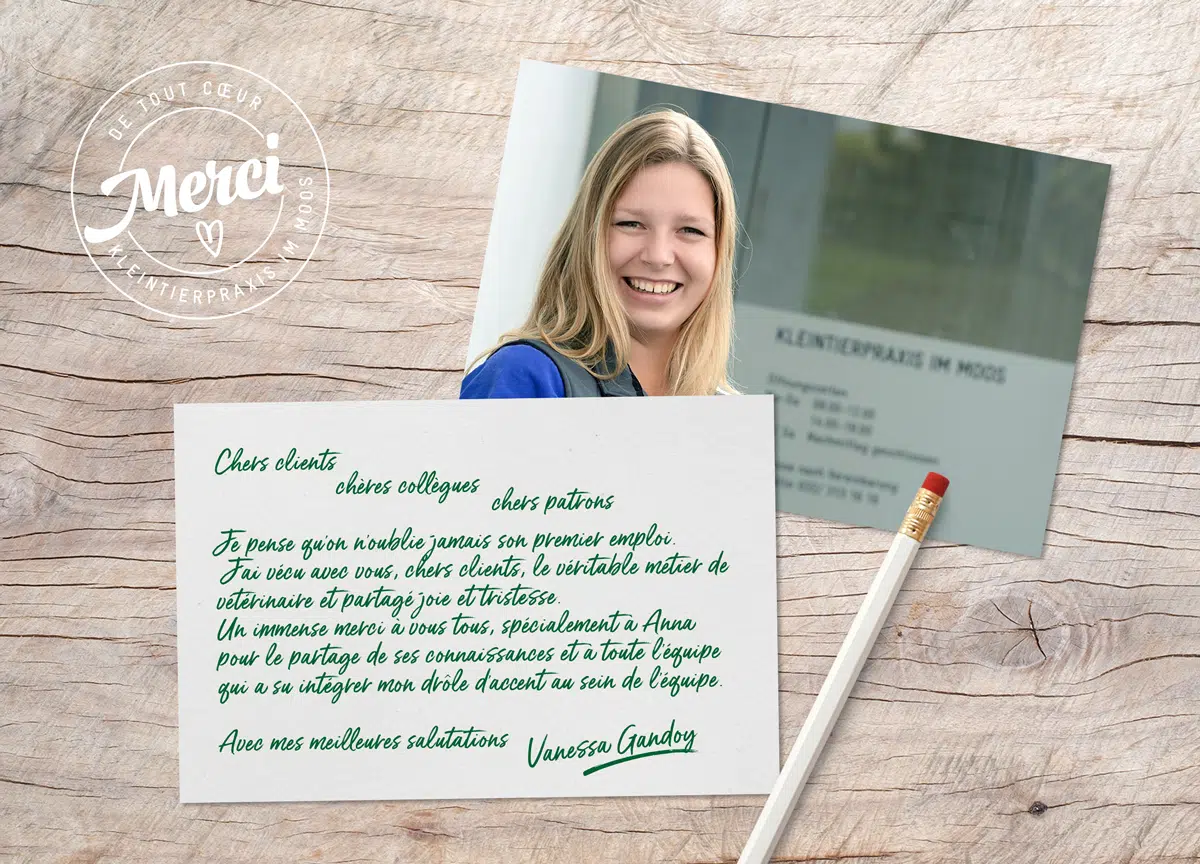 DE TOUT CŒUR
Merci
KLEINTIERPRAXIS IM MOOS
KLEINTIERPRAXIS IM MOOS
Öffnungszeiten
08:00-12:00
14:00-18:00
Sa Nachmittag geschlossen
nach Vereinbarung
Chers clients
chères collègues
chers patrons
Je pense qu'on n'oublie jamais son premier emploi.
J'ai vécu avec vous, chers clients, le véritable métier de
vétérinaire et partagé joie et tristesse.
Un immense merci à vous tous, spécialement à Anna
pour le partage de ses connaissances et à toute l'équipe
qui a su intégrer mon drôle d'accent au sein de l'équipe.
Avec mes meilleures salutations
Vanessa Gandoy